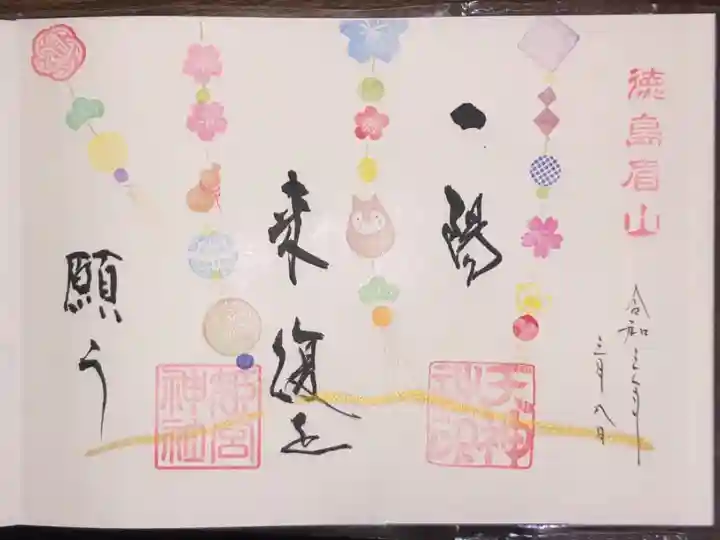 徳島眉山
令和三年
三月八日
一陽
来復を
願う
天神社
姫宮神社